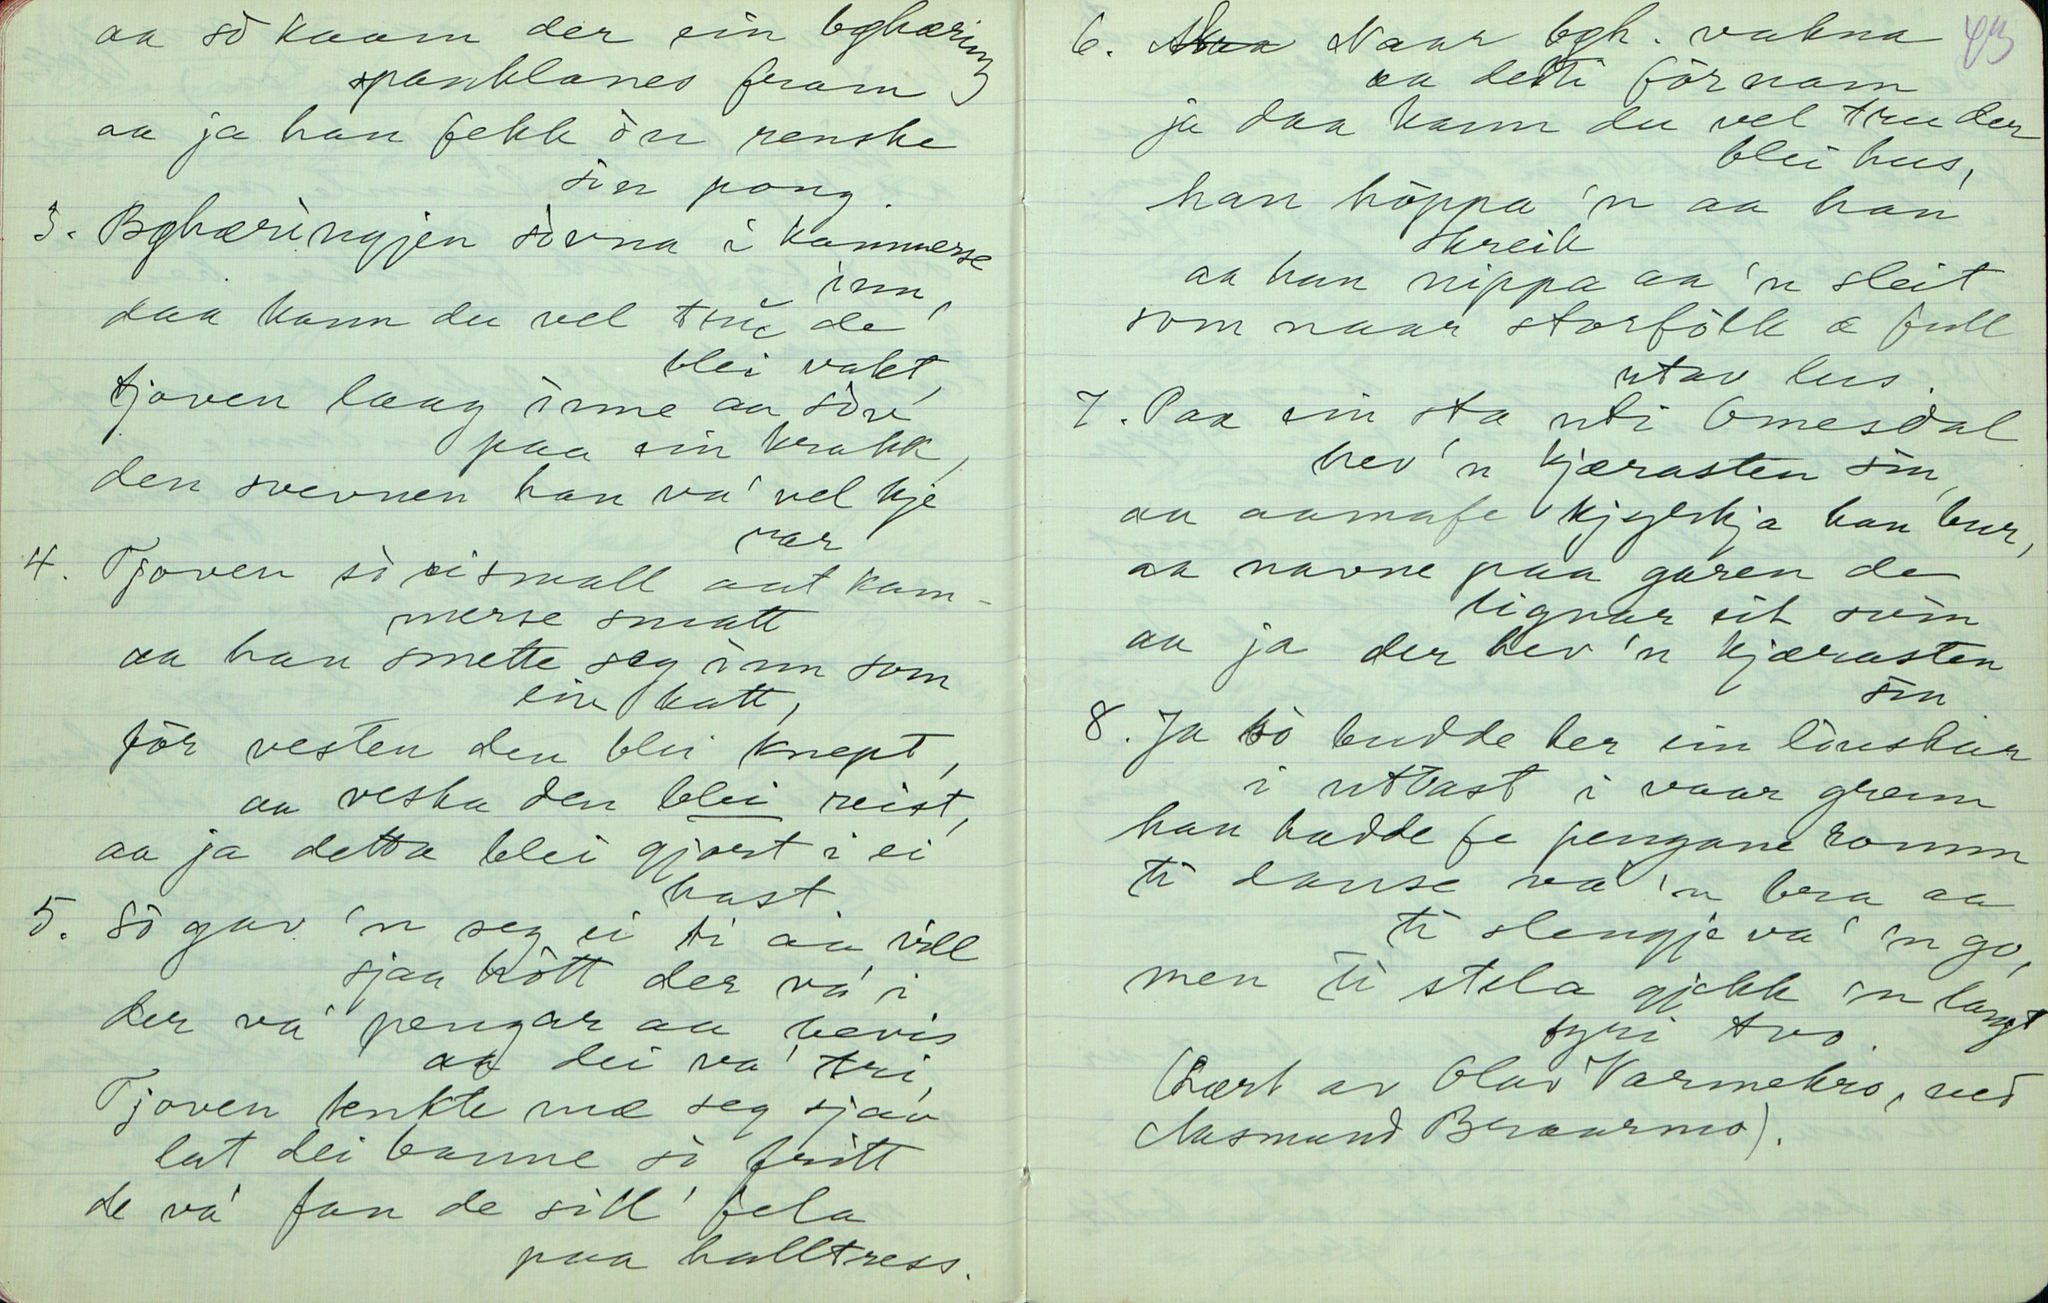 aa sò kaam der ein bghæring
spanklanes fram
aa ja han fekk òn renske
sin pong.
3. Bghæringjen sòvna i kammerse
inn,
daa kann du vel tru de
blei vakt,
tjoven laag inne aa sòv
paa ein krakk,
den svevnen han va' vel kje
rar
4. Tjoven sò i smått aat kam-
merse smatt
aa han smette seg inn som
ein katt,
fòr vesten den blei knept,
aa veska den blei reist,
aa ja detta blei gjort i ei
hast
5. Sò gav 'n seg ei ti aa vill
sjaa hòtt der va' i
der va' pengar aa bevis
aa dei va' tri,
Tjoven tenkte mæ seg sjav
lat dei banne sò fritt
de va' fan de sill' fela
paa halltress.
43
6. Naar bgh. vakna
aa detti fòrnam
ja daa kann du vel tru der
blei hus,
han hòppa 'n aa han
skreik
aa han nippa aa 'n sleit
som naar storfòlk æ full
utav lus.
7. Paa ein sta uti Omesdal
hev 'n kjærasten sin,
aa kjyrkja han bur,
aa navne paa garen de
lignar eit svin
aa ja der hev 'n kjærasten
sin
8. Ja sò budde her ein lòuskar
i uttast i vaar grenn
han hadde fe pengane romm
ti danse va 'n bra aa
ti slengje va' 'n go,
men ti stela gjekk 'n langt
fyri tvo.
(Lært av Olav Varmekro, ved
Aasmund Beraarmo).